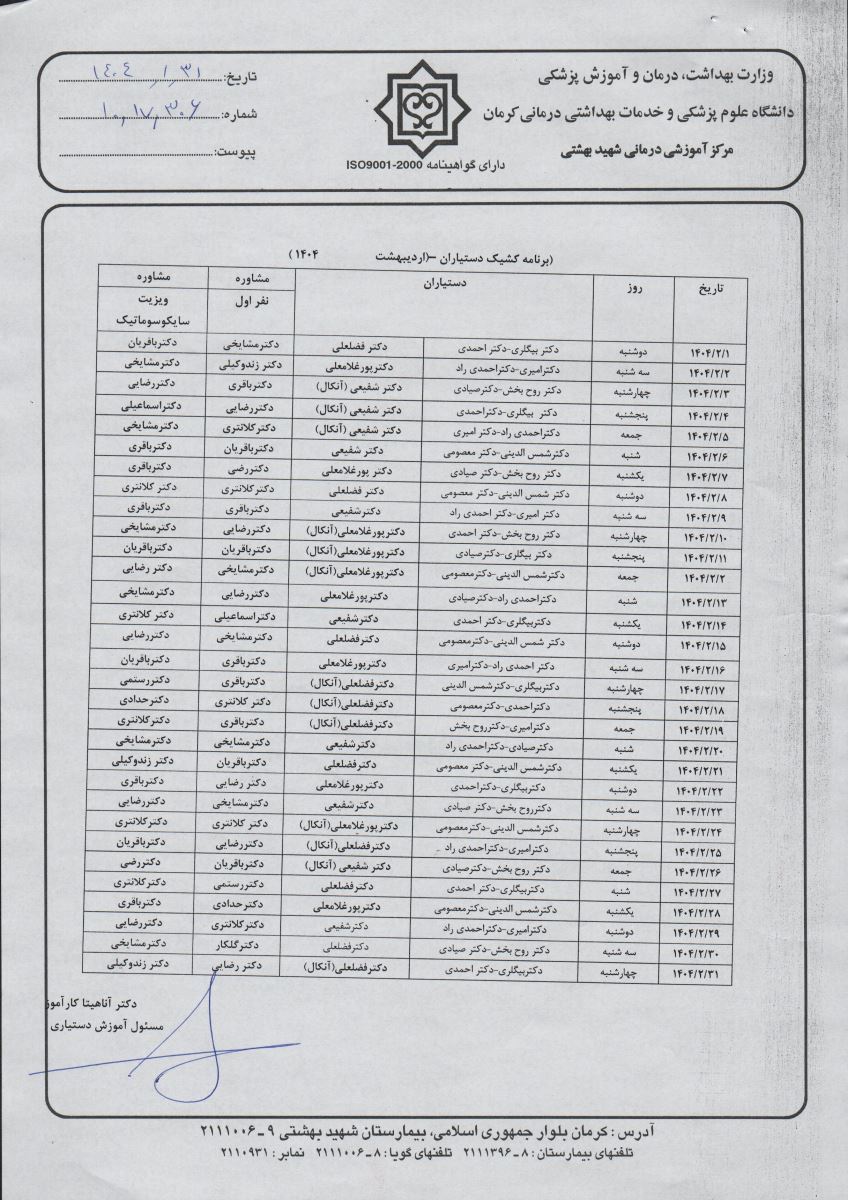 وزارت بهداشت، درمان و آموزش پزشکی
دانشگاه علوم پزشکی و خدمات بهداشتی درمانی کرمان
مرکز آموزشی درمانی شهید بهشتی
دارای گواهینامه ISO9001-2000
تاریخ: ۱۴۰۴،۱،۳۱
شماره: ۱۰،۱۷،۳۰۶
پیوست:
(برنامه کشیک دستیاران –(اردیبهشت ۱۴۰۴ )
تاریخ روز دستیاران مشاوره نفر اول مشاوره ویزیت سایکوسوماتیک
۱۴۰۴/۲/۱ دوشنبه دکتر بیگلری-دکتر احمدی دکتر فضلعلی دکترمشایخی دکترباقریان
۱۴۰۴/۲/۲ سه شنبه دکترامیری-دکتراحمدی راد دکترپورغلامعلی دکتر زندوکیلی دکترمشایخی
۱۴۰۴/۲/۳ چهارشنبه دکتر روح بخش-دکترصیادی دکتر شفیعی (آنکال) دکترباقری دکتررضایی
۱۴۰۴/۲/۴ پنجشنبه دکتر بیگلری-دکتراحمدی دکتر شفیعی (آنکال) دکتررضایی دکتراسماعیلی
۱۴۰۴/۲/۵ جمعه دکتراحمدی راد-دکتر امیری دکتر شفیعی (آنکال) دکترکلانتری دکترمشایخی
۱۴۰۴/۲/۶ شنبه دکترشمس الدینی-دکتر معصومی دکتر شفیعی دکترباقریان دکترباقری
۱۴۰۴/۲/۷ یکشنبه دکتر روح بخش-دکتر صیادی دکتر پورغلامعلی دکتررضی دکترباقری
۱۴۰۴/۲/۸ دوشنبه دکتر شمس الدینی-دکتر معصومی دکتر فضلعلی دکترکلانتری دکتر کلانتری
۱۴۰۴/۲/۹ سه شنبه دکتر امیری-دکتر احمدی راد دکترشفیعی دکترباقری دکترباقری
۱۴۰۴/۲/۱۰ چهارشنبه دکتر روح بخش-دکتر احمدی دکترپورغلامعلی(آنکال) دکتررضایی دکترمشایخی
۱۴۰۴/۲/۱۱ پنجشنبه دکتر بیگلری-دکترصیادی دکترپورغلامعلی(آنکال) دکترباقریان دکترباقریان
۱۴۰۴/۲/۲ جمعه دکترشمس الدینی-دکترمعصومی دکترپورغلامعلی(آنکال) دکترمشایخی دکتر رضایی
۱۴۰۴/۲/۱۳ شنبه دکتراحمدی راد-دکترصیادی دکترپورغلامعلی دکتررضایی دکترمشایخی
۱۴۰۴/۲/۱۴ یکشنبه دکتربیگلری-دکتر احمدی دکترشفیعی دکتراسماعیلی دکتر کلانتری
۱۴۰۴/۲/۱۵ دوشنبه دکتر شمس الدینی-دکترمعصومی دکترفضلعلی دکترمشایخی دکتررضایی
۱۴۰۴/۲/۱۶ سه شنبه دکتر احمدی راد-دکترامیری دکترپورغلامعلی دکترباقری دکترباقریان
۱۴۰۴/۲/۱۷ چهارشنبه دکتربیگلری-دکترشمس الدینی دکترفضلعلی(آنکال) دکترباقری دکتررستمی
۱۴۰۴/۲/۱۸ پنجشنبه دکتراحمدی-دکترمعصومی دکترفضلعلی(آنکال) دکتر کلانتری دکترحدادی
۱۴۰۴/۲/۱۹ جمعه دکترامیری-دکترروح بخش دکترفضلعلی(آنکال) دکترباقری دکترکلانتری
۱۴۰۴/۲/۲۰ شنبه دکترصیادی-دکتراحمدی راد دکترشفیعی دکترمشایخی دکترمشایخی
۱۴۰۴/۲/۲۱ یکشنبه دکترشمس الدینی-دکتر معصومی دکترفضلعلی دکترباقریان دکتر زندوکیلی
۱۴۰۴/۲/۲۲ دوشنبه دکتربیگلری-دکتراحمدی دکترپورغلامعلی دکتر رضایی دکترباقری
۱۴۰۴/۲/۲۳ سه شنبه دکترروح بخش-دکتر صیادی دکترشفیعی دکترمشایخی دکتررضایی
۱۴۰۴/۲/۲۴ چهارشنبه دکترشمس الدینی-دکترمعصومی دکترپورغلامعلی(آنکال) دکتر کلانتری دکترکلانتری
۱۴۰۴/۲/۲۵ پنجشنبه دکترامیری-دکتراحمدی راد دکترفضلعلی(آنکال) دکتررضایی دکترباقریان
۱۴۰۴/۲/۲۶ جمعه دکتر روح بخش-دکترصیادی دکتر شفیعی (آنکال) دکترباقریان دکتررضی
۱۴۰۴/۲/۲۷ شنبه دکتربیگلری-دکتر احمدی دکترفضلعلی دکتررستمی دکترکلانتری
۱۴۰۴/۲/۲۸ یکشنبه دکترشمس الدینی-دکترمعصومی دکترپورغلامعلی دکترحدادی دکترباقری
۱۴۰۴/۲/۲۹ دوشنبه دکترامیری-دکتراحمدی راد دکترشفیعی دکترکلانتری دکتررضایی
۱۴۰۴/۲/۳۰ سه شنبه دکتر روح بخش-دکتر صیادی دکترفضلعلی دکترگلکار دکترمشایخی
۱۴۰۴/۲/۳۱ چهارشنبه دکتربیگلری-دکتر احمدی دکترفضلعلی(آنکال) دکتر رضایی دکتر زندوکیلی
دکتر آناهیتا کارآموز
مسئول آموزش دستیاری
آدرس : کرمان بلوار جمهوری اسلامی، بیمارستان شهید بهشتی ۹ - ۲۱۱۱۰۰۶
تلفنهای بیمارستان : ۸ - ۲۱۱۱۳۹۶ تلفنهای گویا : ۸ - ۲۱۱۱۰۰۶ نمابر : ۲۱۱۰۹۳۱